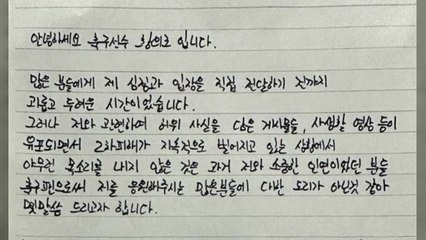 안녕하세요 축구선수 황의조 입니다.
많은 분들에게 제 심정과 입장을 직접 전달하기 전까지
괴롭고 두려운 시간이었습니다.
그러나 저와 관련하여 허위 사실을 담은 게시물들, 사생활 영상 등이
유포되면서 2차피해가 지속적으로 벌어지고 있는 상황에서
아무런 목소리를 내지 않은 것은 과거 저와 소중한 인연이었던 분들
축구팬으로써 저를 응원해주시는 많은분들에 대한 도리가 아닌것 같아
몇말씀 드리고자 합니다.